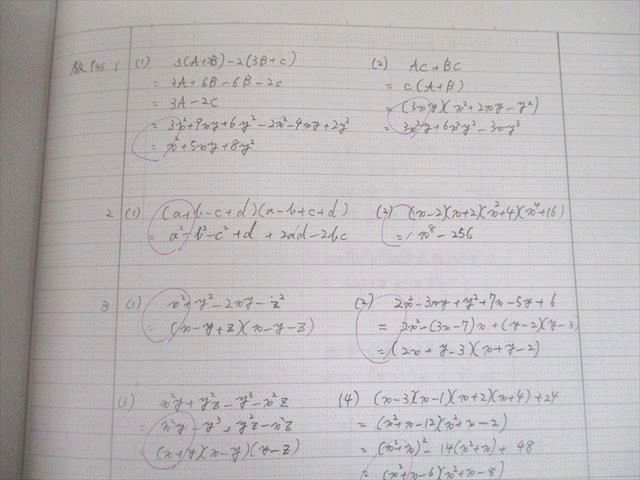 教P46 1 (1) 3(A+2B)-2(3B+C)
= 3A+6B-6B-2C
= 3A-2C
= 3x²+9xy+6y²-2x²-4xy+2y²
= x²+5xy+8y²
(2) AC+BC
= C(A+B)
= (3xy)(x²+2xy-y²)
= 3x³y+6x²y²-3xy³
2 (1) (a+b-c+d)(a-b+c+d)
= a²-b²-c²+d²+2ad-2bc
(2) (x-2)(x+2)(x²+4)(x⁴+16)
= x⁸-256
3 (1) x²+y²-2xy-z²
= (x-y+z)(x-y-z)
(2) 2x²-3xy+y²+7x-5y+6
= 2x²-(3x-7)x+(y-2)(y-3)
= (2x+y-3)(x+y-2)
(3) x²y+y²z-y³-x²z
= x²y-y³+y²z-x²z
= (x+y)(x-y)(y-z)
(4) (x-3)(x-1)(x+2)(x+4)+24
= (x²+x-12)(x²+x-2)
= (x²+x)²-14(x²+x)+48
= (x²+x-6)(x²+x-8)